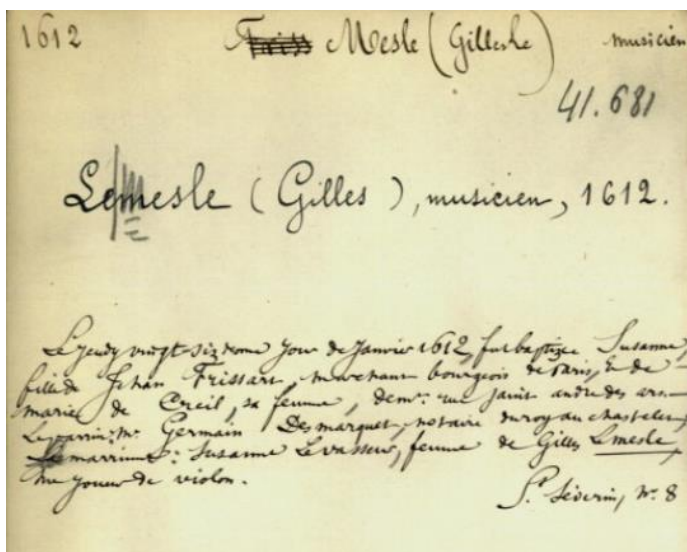 1612 Mesle (Gilles le) musicien
41.681
Lemesle (Gilles), musicien, 1612.
Le jeudy vingt sixiesme jour de Janvier 1612, fut baptizée Susanne,
fille de Jehan Frissart, marchant bourgeois de Paris, & de
marie de Creil, sa femme, demt. rue saint andré des ars.
Le parrin: Me. Germain Desmarquet, notaire du roy au chastelet,
marrine: Susanne Levasseur, femme de Gilles Lemesle,
me joueur de violon.
St. Séverin, nº. 8